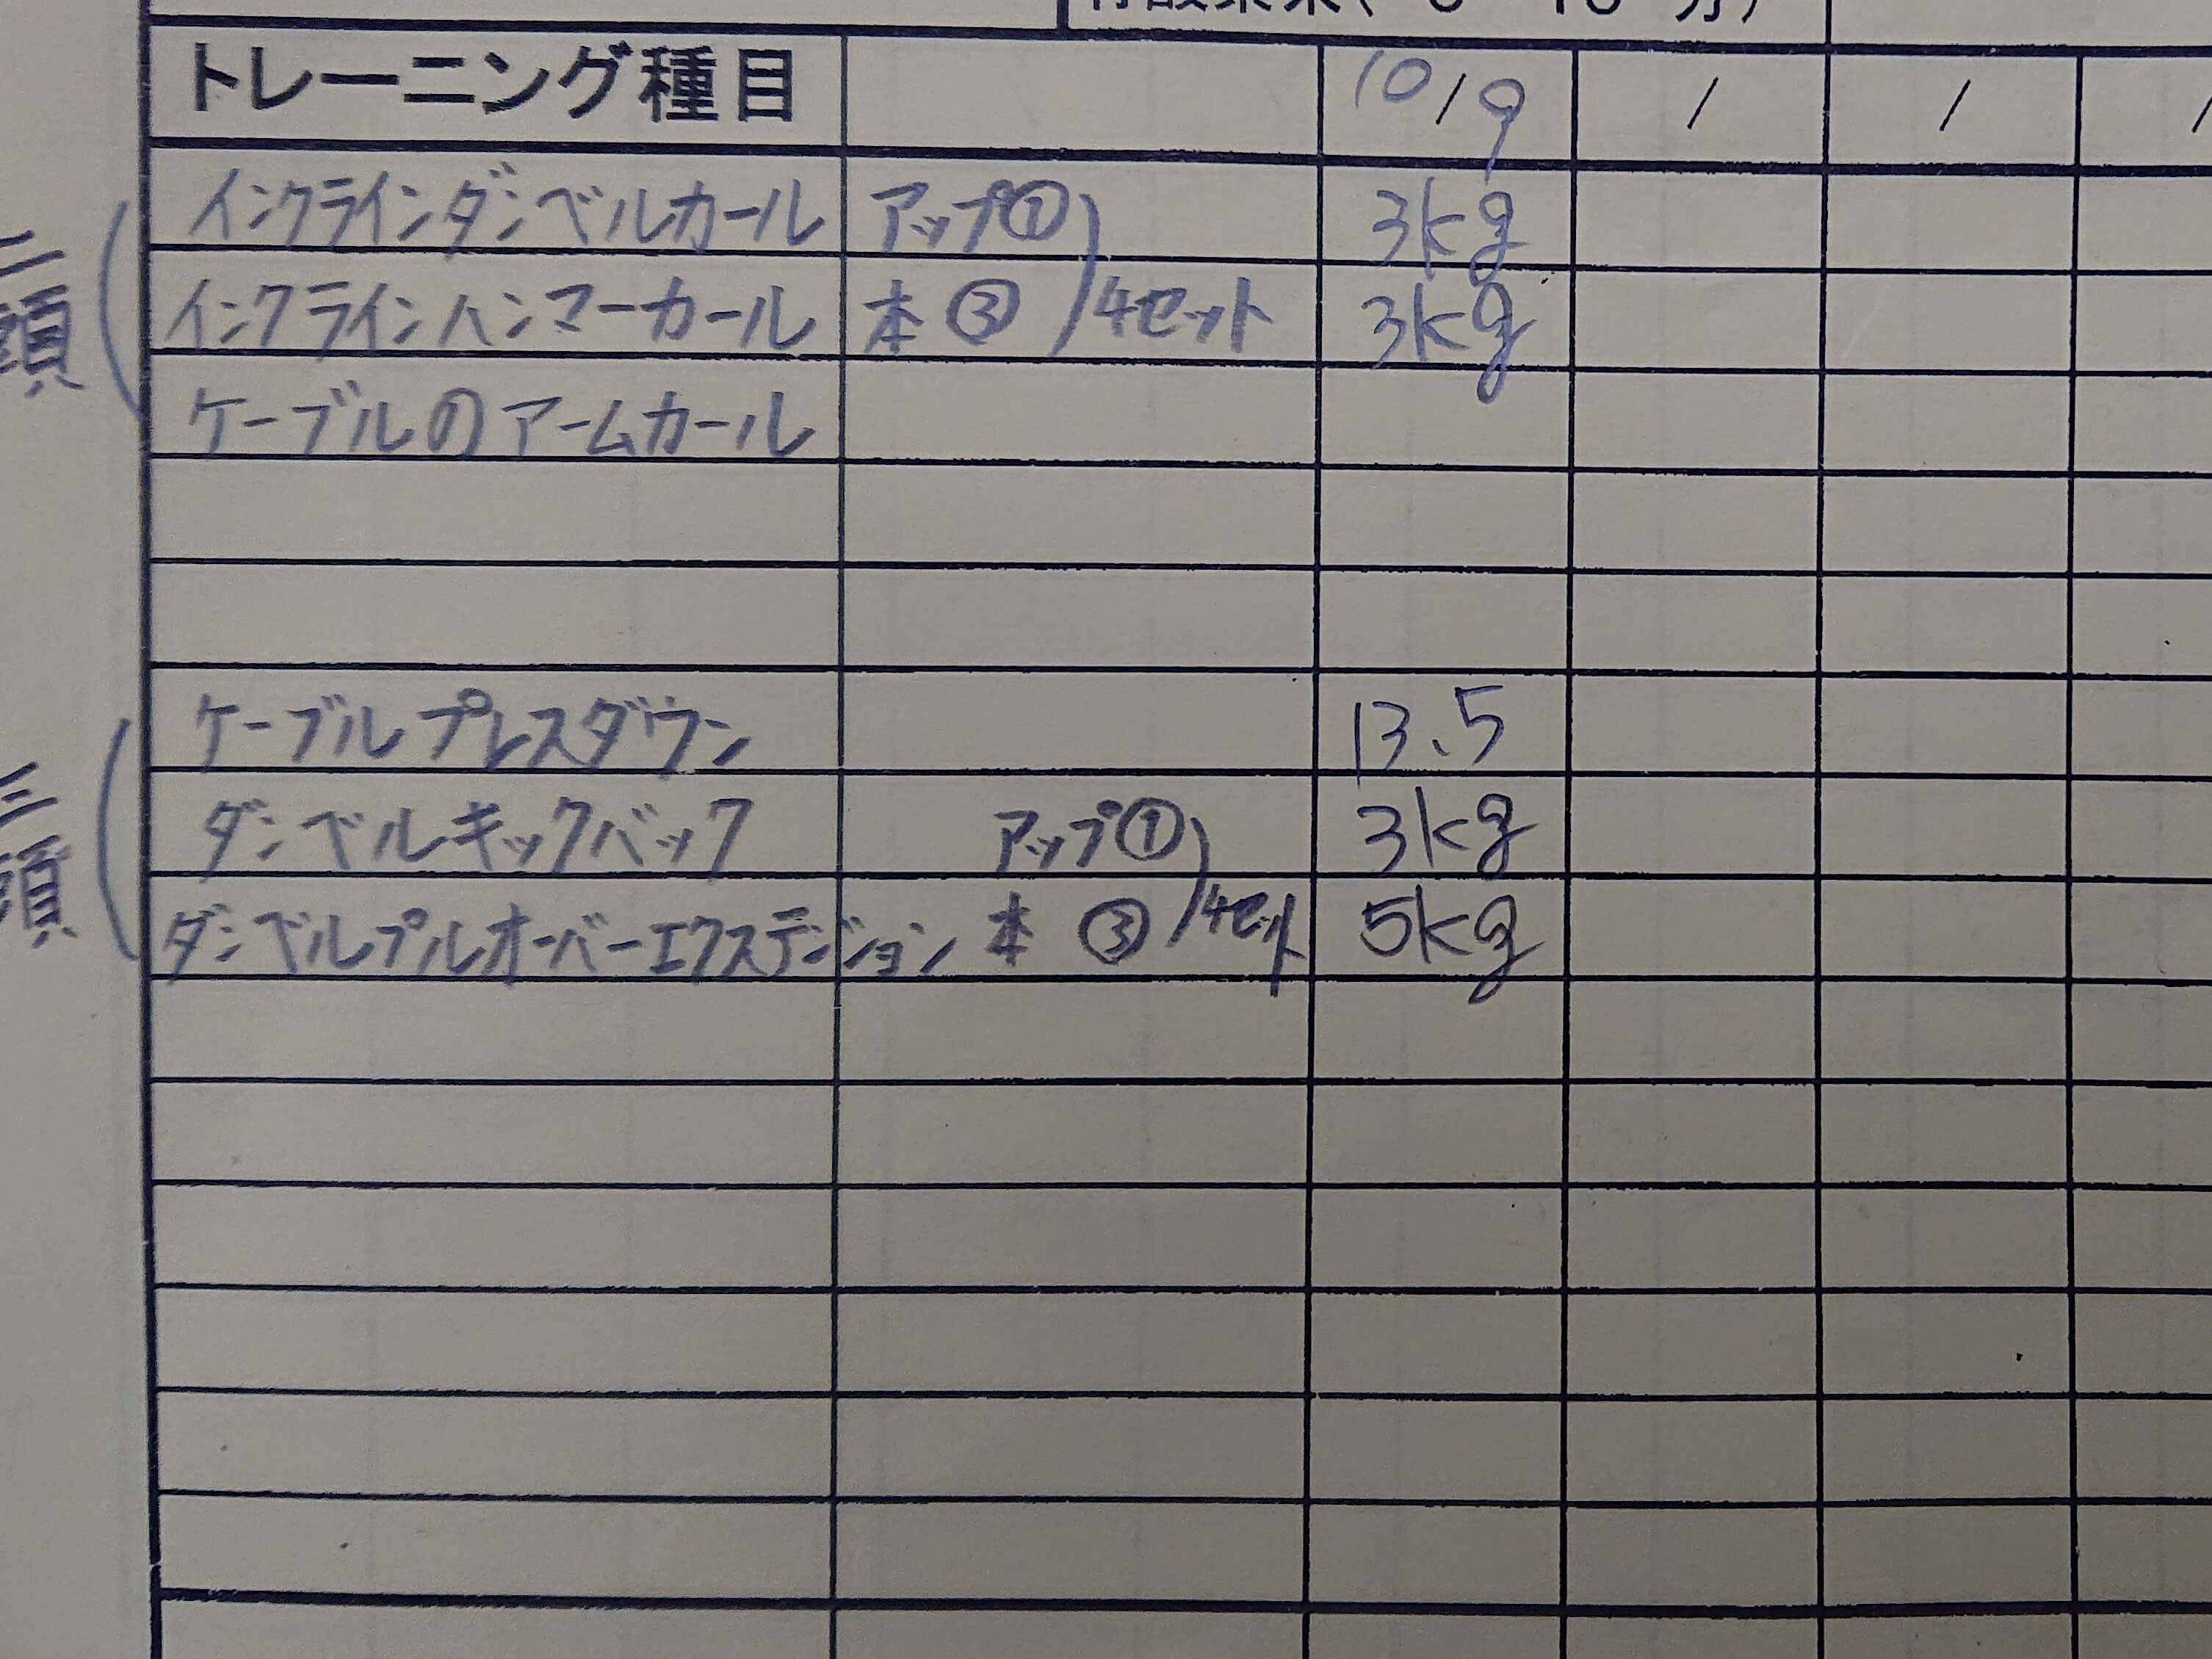 トレーニング種目 10/9 / / /
二頭
インクラインダンベルカール アップ① 3kg
インクラインハンマーカール 本③ 4セット 3kg
ケーブルのアームカール
三頭
ケーブルプレスダウン 13.5
ダンベルキックバック アップ① 3kg
ダンベルプルオーバーエクステンション 本③ 4セット 5kg